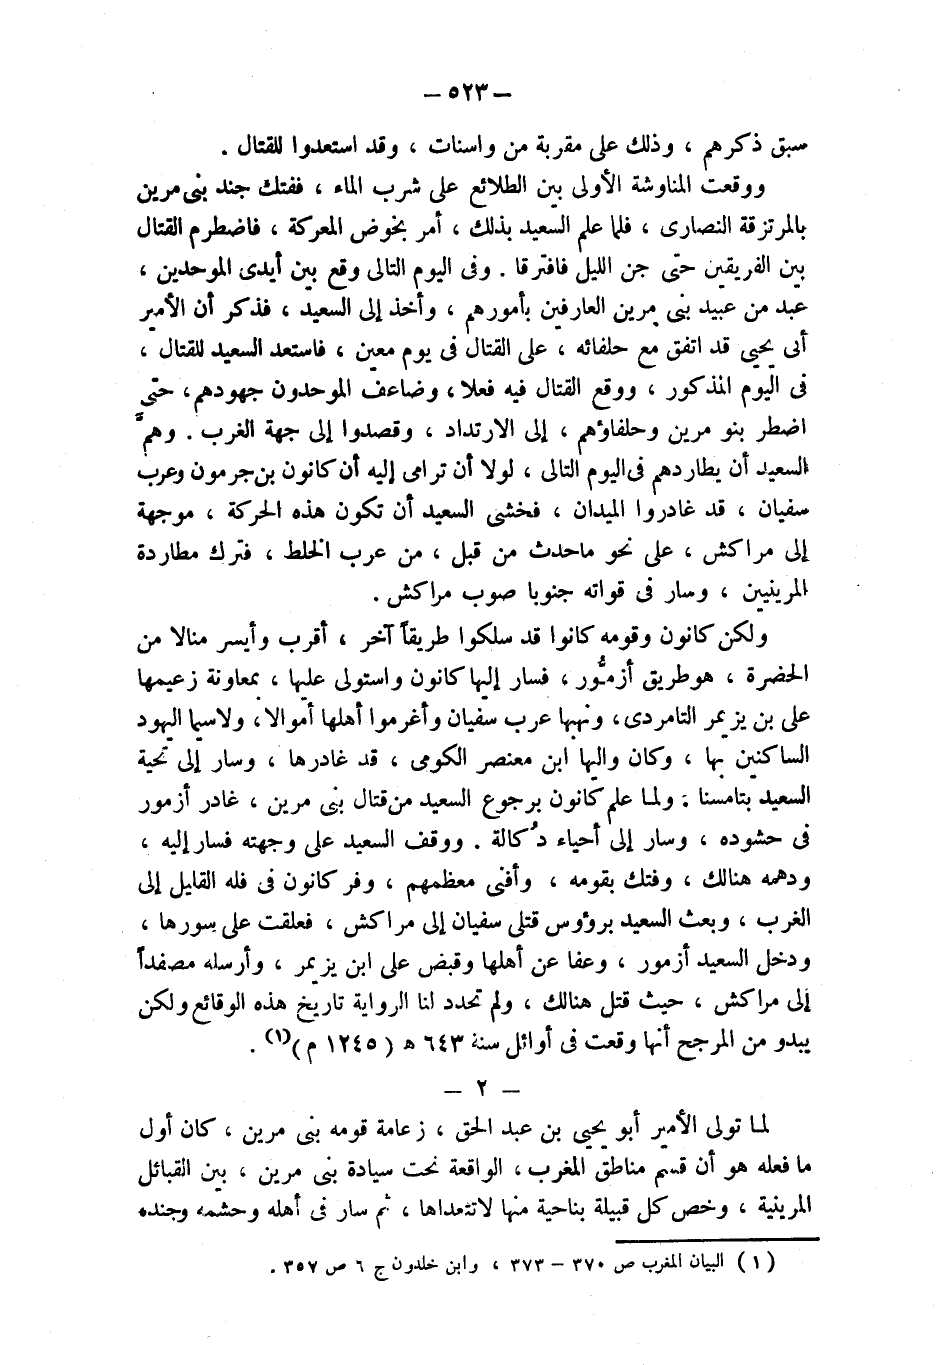 — ٥٢٣ —
سبق ذكرهم ، وذلك على مقربة من واسنات ، وقد استعدوا للقتال .
ووقعت المناوشة الأولى بين الطلائع على شرب الماء ، ففتك جند بنى مرين
بالمرتزقة النصارى ، فلما علم السعيد بذلك ، أمر بخوض المعركة ، فاضطرم القتال
بين الفريقين حتى جن الليل فافترقا . وفى اليوم التالى وقع بين أيدى الموحدين ،
عبد من عبيد بنى مرين العارفين بأمورهم ، وأخذ إلى السعيد ، فذكر أن الأمير
أبى يحيى قد اتفق مع حلفائه ، على القتال فى يوم معين ، فاستعد السعيد للقتال ،
فى اليوم المذكور ، ووقع القتال فيه فعلا ، وضاعف الموحدون جهودهم ، حتى
اضطر بنو مرين وحلفاؤهم ، إلى الارتداد ، وقصدوا إلى جهة الغرب . وهمَّ
السعيد أن يطاردهم فى اليوم التالى ، لولا أن ترامى إليه أن كانون بن جرمون وعرب
سفيان ، قد غادروا الميدان ، فخشى السعيد أن تكون هذه الحركة ، موجهة
إلى مراكش ، على نحو ماحدث من قبل ، من عرب الخلط ، فترك مطاردة
المرينيين ، وسار فى قواته جنوبا صوب مراكش .
ولكن كانون وقومه كانوا قد سلكوا طريقاً آخر ، أقرب وأيسر منالا من
الحضرة ، هو طريق أزمُّور ، فسار إليها كانون واستولى عليها ، بمعاونة زعيمها
على بن يزيمر التامردى ، ونهبها عرب سفيان وأغرموا أهلها أموالا ، ولاسيما اليهود
الساكنين بها ، وكان واليها ابن معنصر الكومى ، قد غادرها ، وسار إلى تحية
السعيد بتامسنا . ولما علم كانون برجوع السعيد من قتال بنى مرين ، غادر أزمور
فى حشوده ، وسار إلى أحياء دُكالة . ووقف السعيد على وجهته فسار إليه ،
ودهمه هنالك ، وفتك بقومه ، وأفنى معظمهم ، وفر كانون فى فله القليل إلى
الغرب ، وبعث السعيد برؤوس قتلى سفيان إلى مراكش ، فعلقت على سورها ،
ودخل السعيد أزمور ، وعفا عن أهلها وقبض على ابن يزيمر ، وأرسله مصفداً
إلى مراكش ، حيث قتل هنالك ، ولم تحدد لنا الرواية تاريخ هذه الوقائع ولكن
يبدو من المرجح أنها وقعت فى أوائل سنة ٦٤٣ ه ( ١٢٤٥ م )(١) .
— ٢ —
لما تولى الأمير أبو يحيى بن عبد الحق ، زعامة قومه بنى مرين ، كان أول
ما فعله هو أن قسم مناطق المغرب ، الواقعة تحت سيادة بنى مرين ، بين القبائل
المرينية ، وخص كل قبيلة بناحية منها لاتتعداها ، ثم سار فى أهله وحشمه وجنده
( ١ ) البيان المغرب ص ٣٧٠ – ٣٧٣ ، وابن خلدون ج ٦ ص ٣٥٧ .